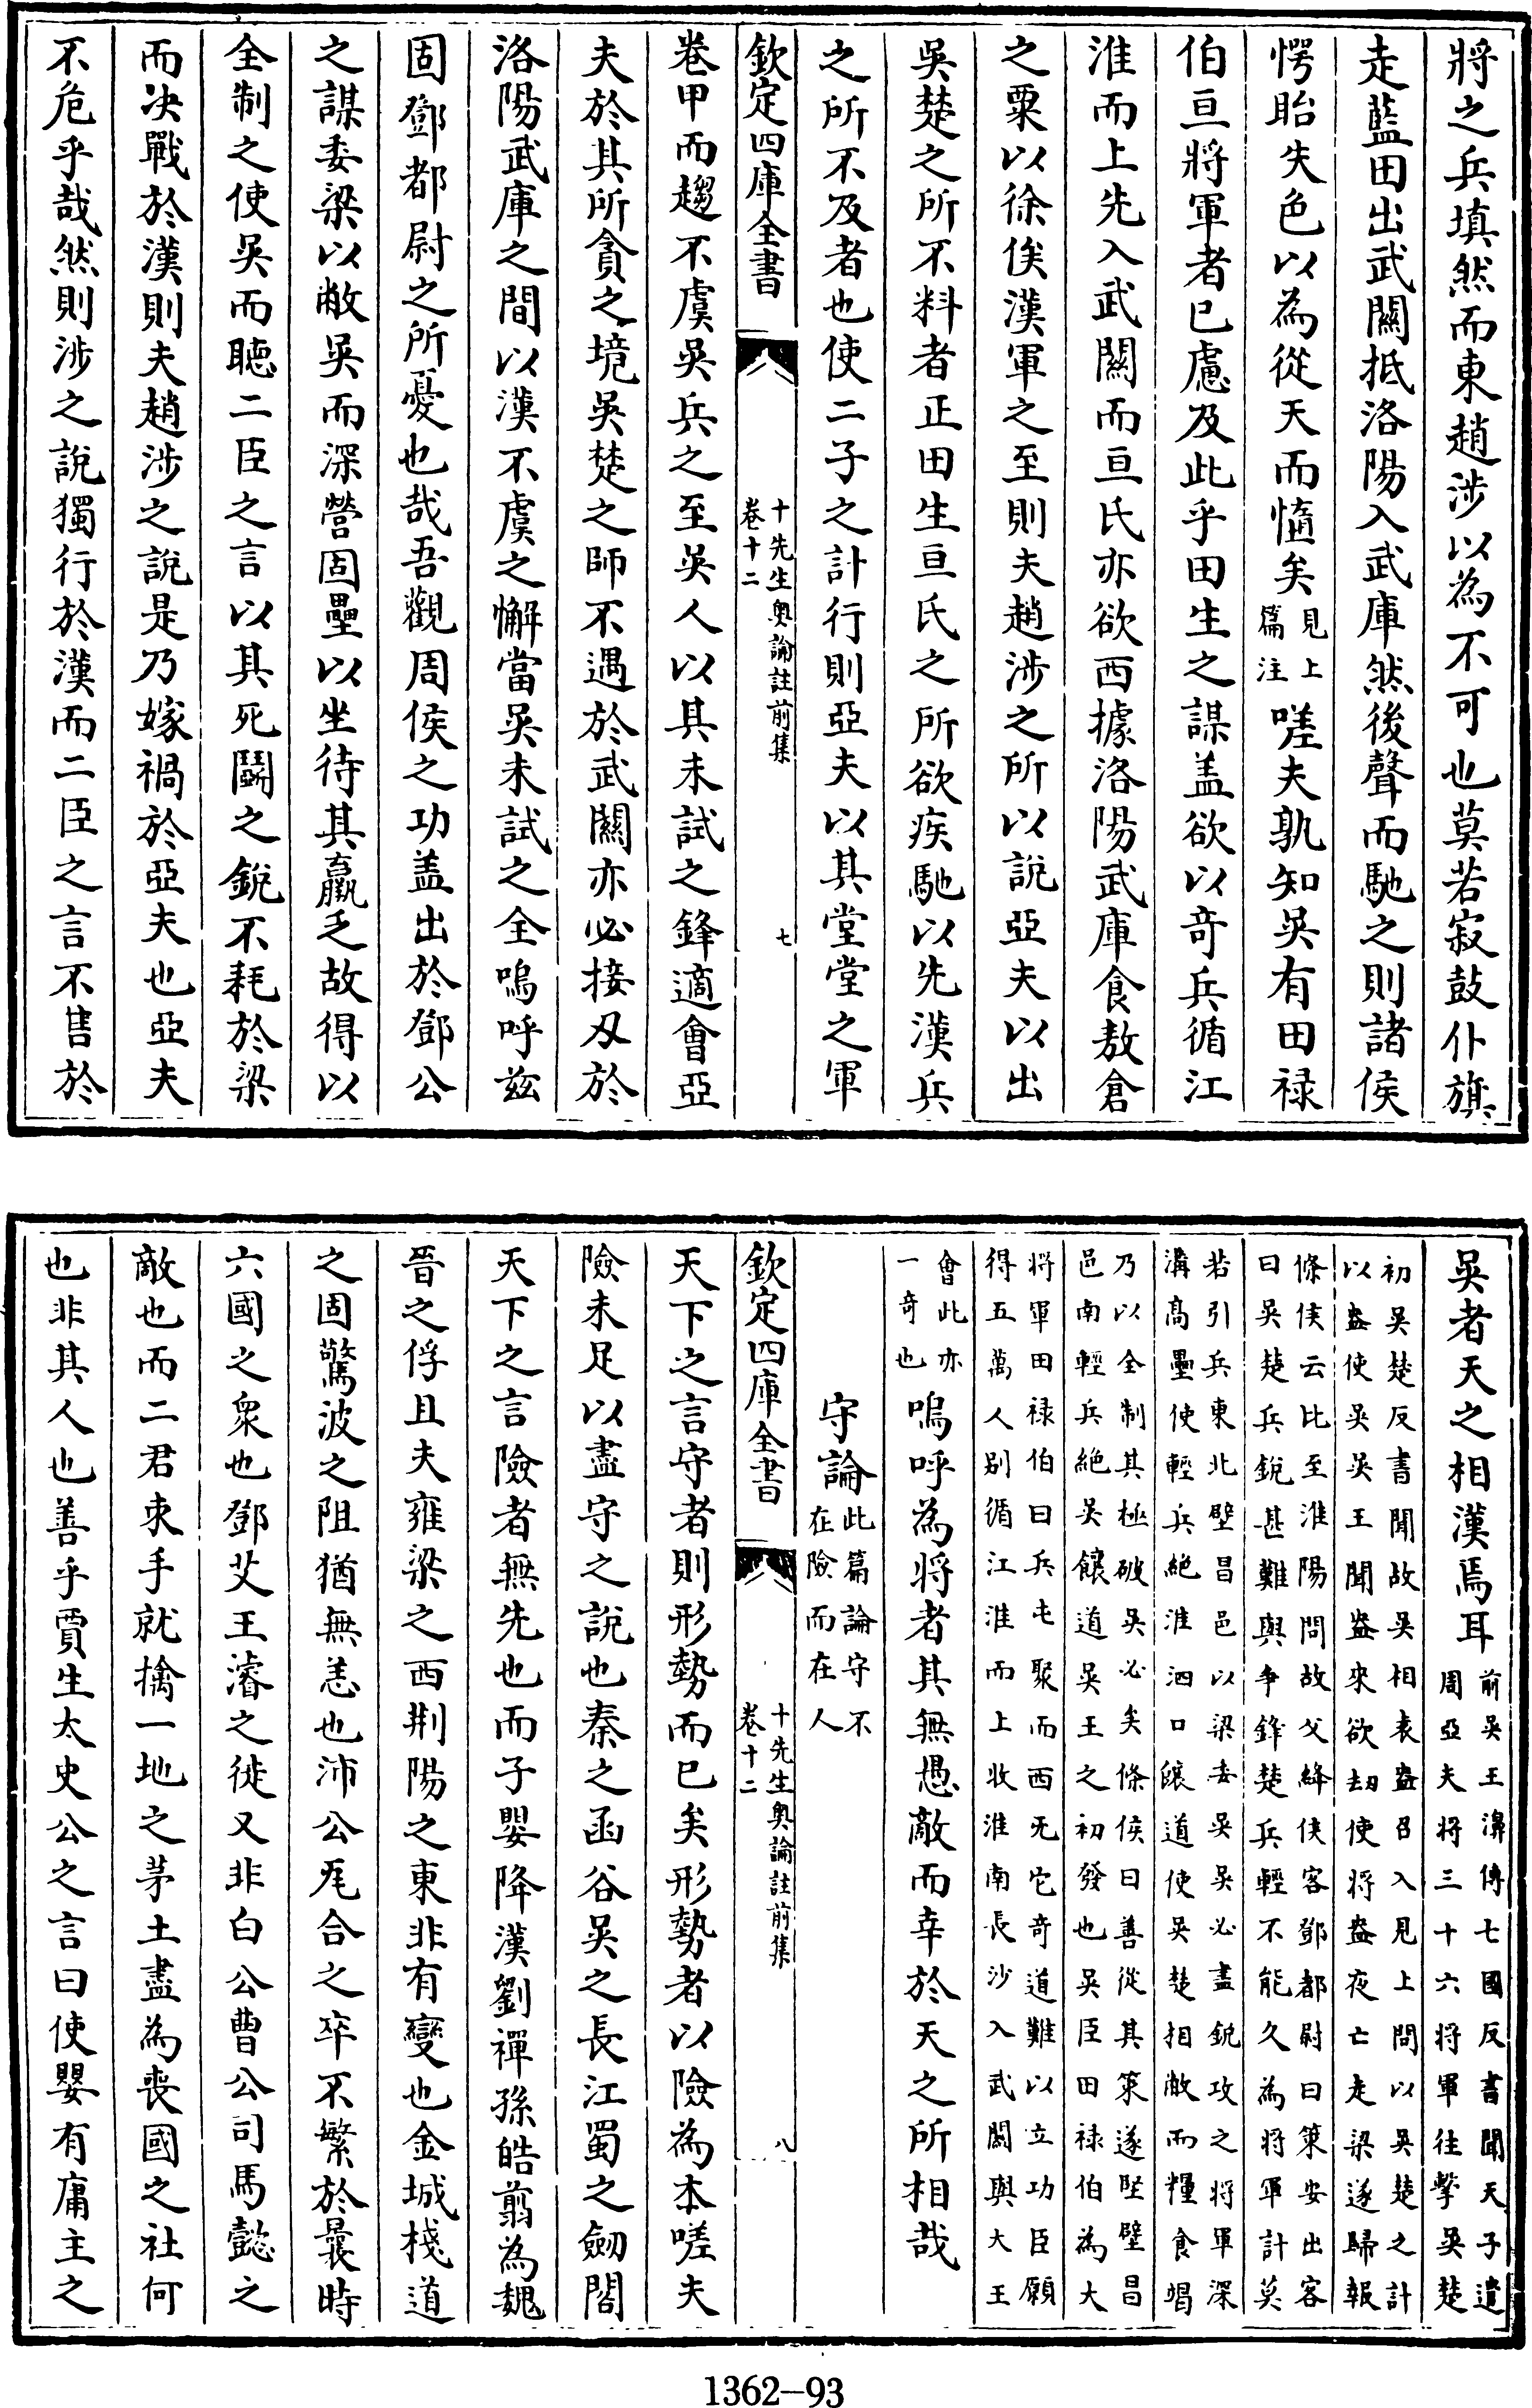 將之兵填然而東趙涉以為不可也莫若寂鼓仆旗
走藍田出武關抵洛陽入武庫然後聲而馳之則諸侯
愕眙失色以為從天而墮矣見上篇注嗟夫孰知吳有田禄
伯亘將軍者已慮及此乎田生之謀盖欲以竒兵循江
淮而上先入武關而亘氏亦欲西據洛陽武庫食敖倉
之粟以徐俟漢軍之至則夫趙涉之所以說亞夫以出
吳楚之所不料者正田生亘氏之所欲疾馳以先漢兵
之所不及者也使二子之計行則亞夫以其堂堂之軍
欽定四庫全書
十先生奥論註前集
卷十二
七
卷甲而趨不虞吳兵之至吳人以其未試之鋒適會亞
夫於其所貪之境吳楚之師不遇於武關亦必接刄於
洛陽武庫之間以漢不虞之懈當吳未試之全嗚呼兹
固鄧都尉之所憂也哉吾觀周侯之功盖出於鄧公
之謀委梁以敝吳而深營固壘以坐待其羸乏故得以
全制之使吳而聽二臣之言以其死鬭之銳不耗於梁
而决戰於漢則夫趙涉之說是乃嫁禍於亞夫也亞夫
不危乎哉然則涉之說獨行於漢而二臣之言不售於
吳者天之相漢焉耳前吳王濞傳七國反書聞天子遣
周亞夫將三十六將軍往擊吳楚
初吳楚反書聞故吳相袁盎召入見上問以吳楚之計
以盎使吳吳王聞盎來欲刼使將盎夜亡走梁遂歸報
條侯云比至淮陽問故父絳侯客鄧都尉曰策安出客
曰吳楚兵銳甚難與争鋒楚兵輕不能久為將軍計莫
若引兵東北壁昌邑以梁委吳吳必盡銳攻之將軍深
溝髙壘使輕兵絶淮泗口饟道使吳楚相敝而糧食竭
乃以全制其極破吳必矣條侯曰善從其策遂堅壁昌
邑南輕兵絶吳饟道吳王之初發也吳臣田禄伯為大
將軍田禄伯曰兵屯聚而西无它竒道難以立功臣願
得五萬人别循江淮而上收淮南長沙入武關與大王
會此亦
一竒也嗚呼為將者其無愚敵而幸於天之所相哉
守論此篇論守不
在險而在人
欽定四庫全書
十先生奥論註前集
卷十二
八
天下之言守者則形勢而已矣形勢者以險為本嗟夫
險未足以盡守之說也秦之函谷吳之長江蜀之劒閣
天下之言險者無先也而子嬰降漢劉禪孫皓翦為魏
晉之俘且夫雍梁之西荆陽之東非有變也金城棧道
之固驚波之阻猶無恙也沛公烏合之卒不繁於曩時
六國之衆也鄧艾王濬之徒又非白公曹公司馬懿之
敵也而二君束手就擒一地之茅土盡為喪國之社何
也非其人也善乎賈生太史公之言曰使嬰有庸主之
1362-93